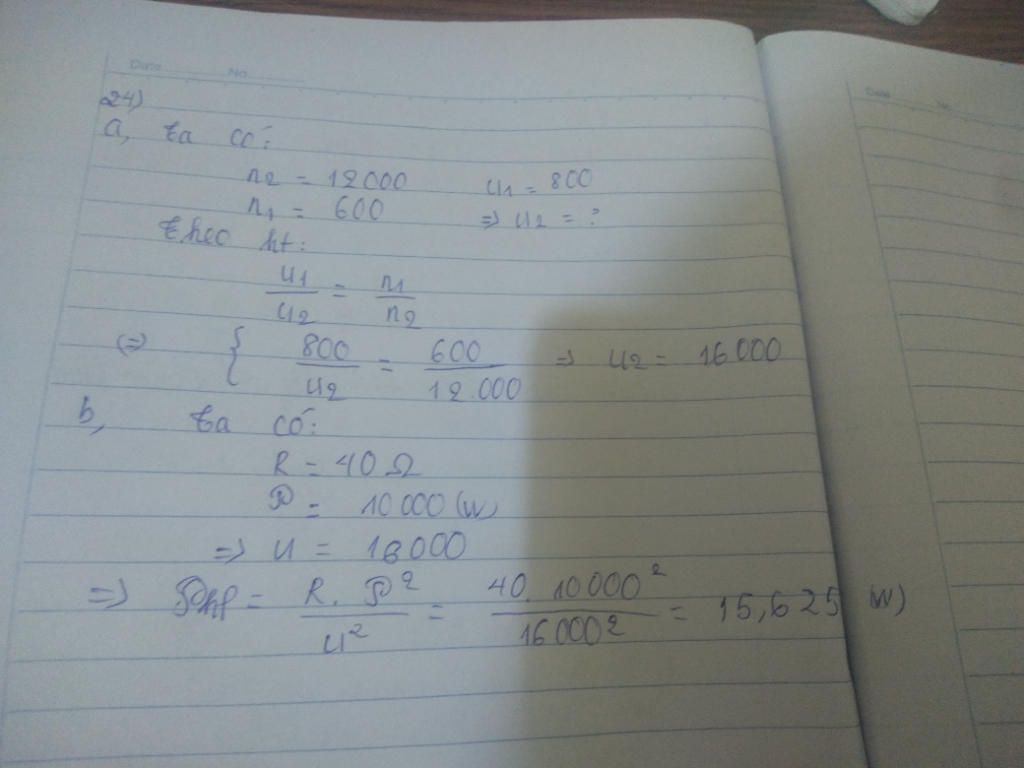 Date No
24)
a, ta có:
n2 = 12000 u1 = 800
n1 = 600 => u2 = ?
theo ht:
u1/u2 = n1/n2
(=> { 800/u2 = 600/12.000 => u2 = 16000
b, ta có:
R = 40 Ω
P = 10000 (W)
=> u = 16000
=> Php = R. P²/u² = 40. 10000²/16000² = 15,625 W)